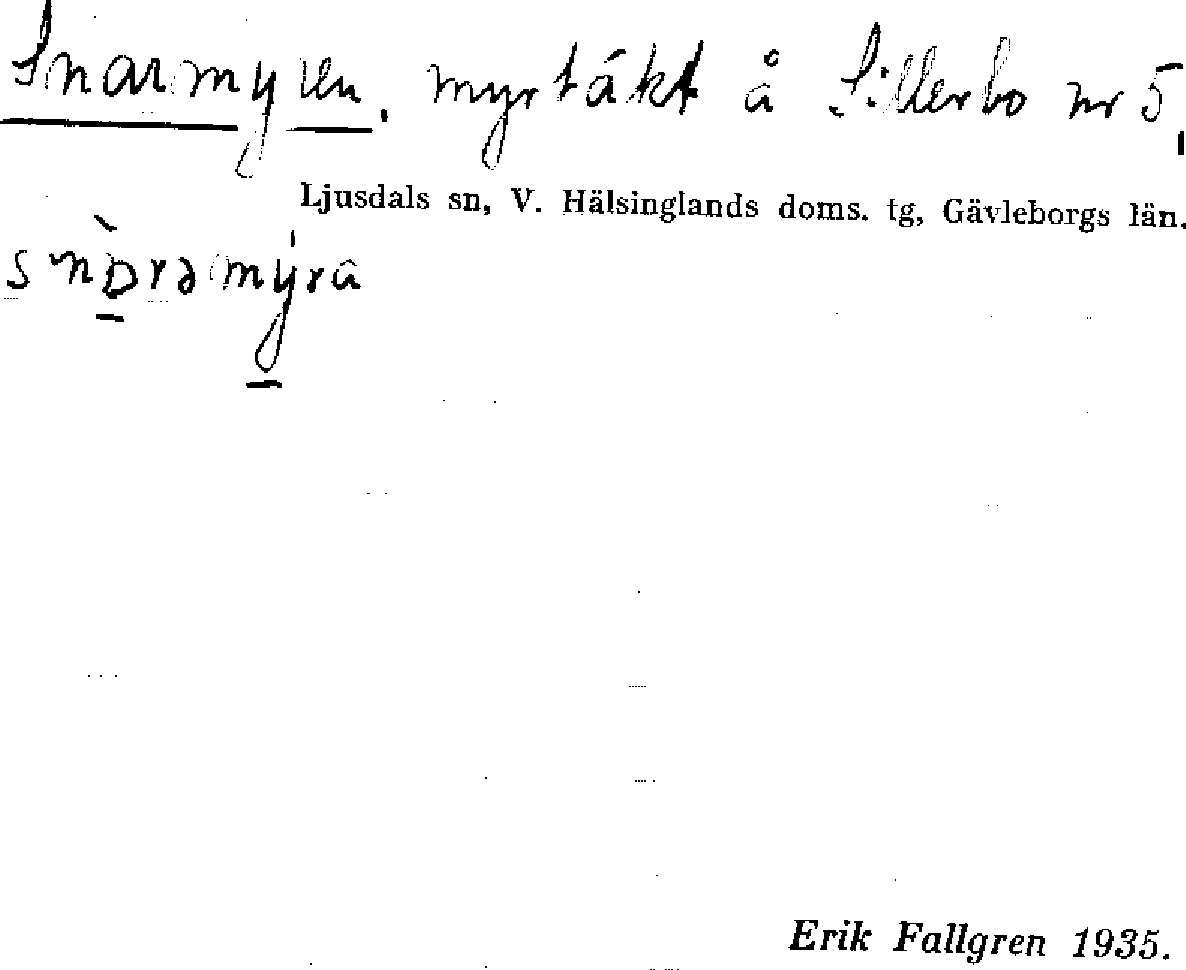 Snarmyren, myrtäkt å Sillerbo nr 5,
Ljusdals sn, V. Hälsinglands doms. tg, Gävleborgs län.
Erik Fallgren 1935.